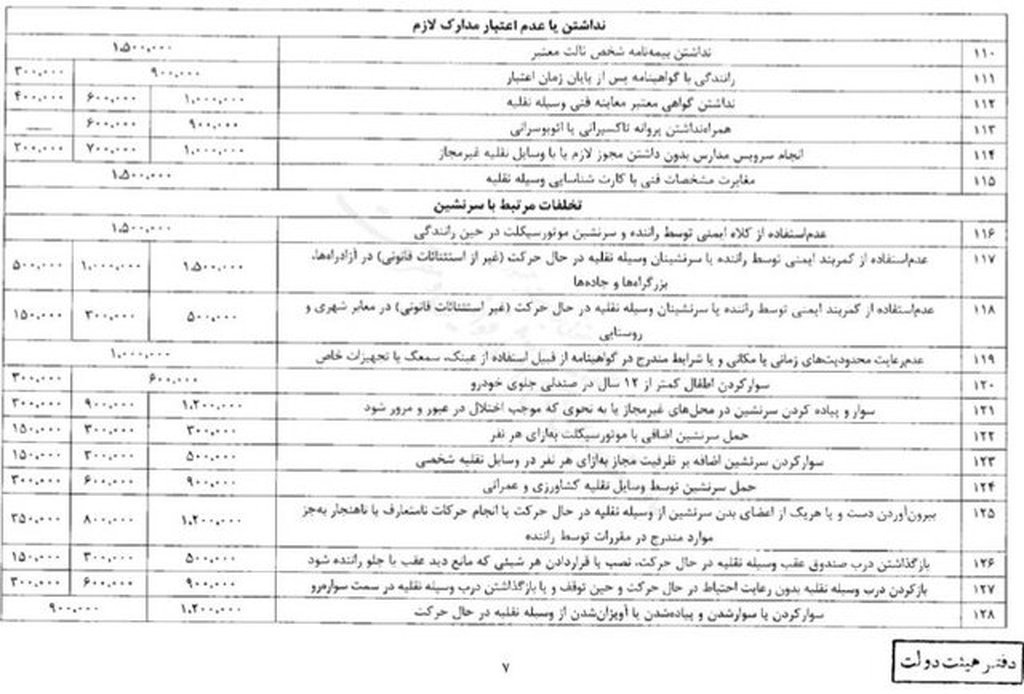 نداشتن یا عدم اعتبار مدارک لازم
۱۱۰ نداشتن بیمه‌نامه شخص ثالث معتبر ۱.۵۰۰.۰۰۰
۱۱۱ رانندگی با گواهینامه پس از پایان زمان اعتبار ۹۰۰.۰۰۰ ۳۰۰.۰۰۰
۱۱۲ نداشتن گواهی معتبر معاینه فنی وسیله نقلیه ۱.۰۰۰.۰۰۰ ۶۰۰.۰۰۰ ۴۰۰.۰۰۰
۱۱۳ همراه‌نداشتن پروانه تاکسیرانی یا اتوبوسرانی ۹۰۰.۰۰۰ ۶۰۰.۰۰۰ ـــــ
۱۱۴ انجام سرویس مدارس بدون داشتن مجوز لازم یا با وسایل نقلیه غیرمجاز ۱.۰۰۰.۰۰۰ ۷۰۰.۰۰۰ ۲۰۰.۰۰۰
۱۱۵ مغایرت مشخصات فنی با کارت شناسایی وسیله نقلیه ۱.۵۰۰.۰۰۰
تخلفات مرتبط با سرنشین
۱۱۶ عدم‌استفاده از کلاه ایمنی توسط راننده و سرنشین موتورسیکلت در حین رانندگی ۱.۵۰۰.۰۰۰
۱۱۷ عدم‌استفاده از کمربند ایمنی توسط راننده یا سرنشینان وسیله نقلیه در حال حرکت (غیر از استثنائات قانونی) در آزادراه‌ها، ۱.۵۰۰.۰۰۰ ۱.۰۰۰.۰۰۰ ۵۰۰.۰۰۰
بزرگراه‌ها و جاده‌ها
۱۱۸ عدم‌استفاده از کمربند ایمنی توسط راننده یا سرنشینان وسیله نقلیه در حال حرکت (غیر استثنائات قانونی) در معابر شهری و ۵۰۰.۰۰۰ ۳۰۰.۰۰۰ ۱۵۰.۰۰۰
روستایی
۱۱۹ عدم‌رعایت محدودیت‌های زمانی یا مکانی و یا شرایط مندرج در گواهینامه از قبیل استفاده از عینک، سمعک یا تجهیزات خاص ۱.۰۰۰.۰۰۰
۱۲۰ سوارکردن اطفال کمتر از ۱۲ سال در صندلی جلوی خودرو ۶۰۰.۰۰۰ ۳۰۰.۰۰۰
۱۲۱ سوار و پیاده کردن سرنشین در محل‌های غیرمجاز یا به نحوی که موجب اختلال در عبور و مرور شود ۱.۲۰۰.۰۰۰ ۹۰۰.۰۰۰ ۳۰۰.۰۰۰
۱۲۲ حمل سرنشین اضافی با موتورسیکلت به‌ازای هر نفر ۳۰۰.۰۰۰ ۳۰۰.۰۰۰ ۱۵۰.۰۰۰
۱۲۳ سوارکردن سرنشین اضافه بر ظرفیت مجاز به‌ازای هر نفر در وسایل نقلیه شخصی ۵۰۰.۰۰۰ ۳۰۰.۰۰۰ ۱۵۰.۰۰۰
۱۲۴ حمل سرنشین توسط وسایل نقلیه کشاورزی و عمرانی ۹۰۰.۰۰۰ ۶۰۰.۰۰۰ ۳۰۰.۰۰۰
۱۲۵ بیرون‌آوردن دست و یا هریک از اعضای بدن سرنشین از وسیله نقلیه در حال حرکت یا انجام حرکات نامتعارف یا ناهنجار به‌جز ۱.۲۰۰.۰۰۰ ۸۰۰.۰۰۰ ۳۵۰.۰۰۰
موارد مندرج در مقررات توسط راننده
۱۲۶ بازگذاشتن درب صندوق عقب وسیله نقلیه در حال حرکت، نصب یا قراردادن هر شیئی که مانع دید عقب یا جلو راننده شود ۵۰۰.۰۰۰ ۳۰۰.۰۰۰ ۱۵۰.۰۰۰
۱۲۷ بازکردن درب وسیله نقلیه بدون رعایت احتیاط در حال حرکت و حین توقف و یا بازگذاشتن درب وسیله نقلیه در سمت سواره‌رو ۹۰۰.۰۰۰ ۶۰۰.۰۰۰ ۳۰۰.۰۰۰
۱۲۸ سوارکردن یا سوارشدن و پیاده‌شدن یا آویزان‌شدن از وسیله نقلیه در حال حرکت ۱.۲۰۰.۰۰۰ ۹۰۰.۰۰۰
دفتر هیئت دولت
۷